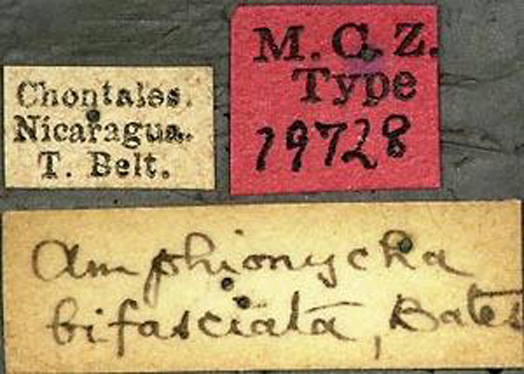 Chontales.
Nicaragua.
T. Belt.
M.C.Z.
Type
19728
Amphionycha
bifasciata, Bates